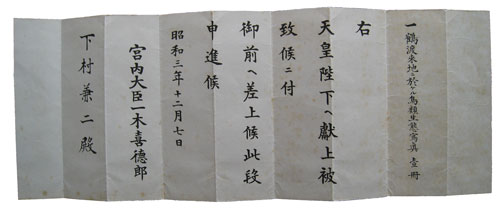 一鶴渡来地ニ於ケル鳥類生態寫眞 壹冊
右
天皇陛下ヘ献上被
致候ニ付
御前ヘ差上候此段
申進候
昭和三年十二月七日
宮内大臣一木喜徳郎
下村兼二殿